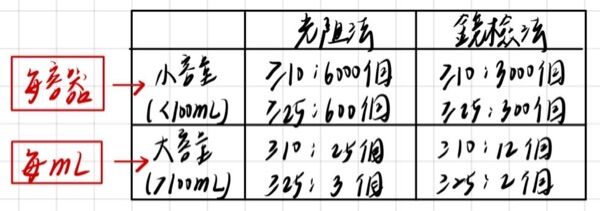 光阻法 鏡檢法
每容器 → 小容量 ≥10:6000個 ≥10:3000個
(<100mL) ≥25:600個 ≥25:300個
每mL → 大容量 ≥10:25個 ≥10:12個
(>100mL) ≥25:3個 ≥25:2個